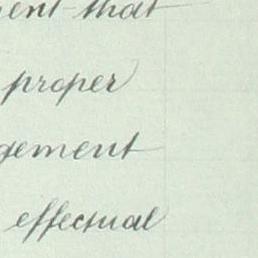 ent that
proper
gement
effectual